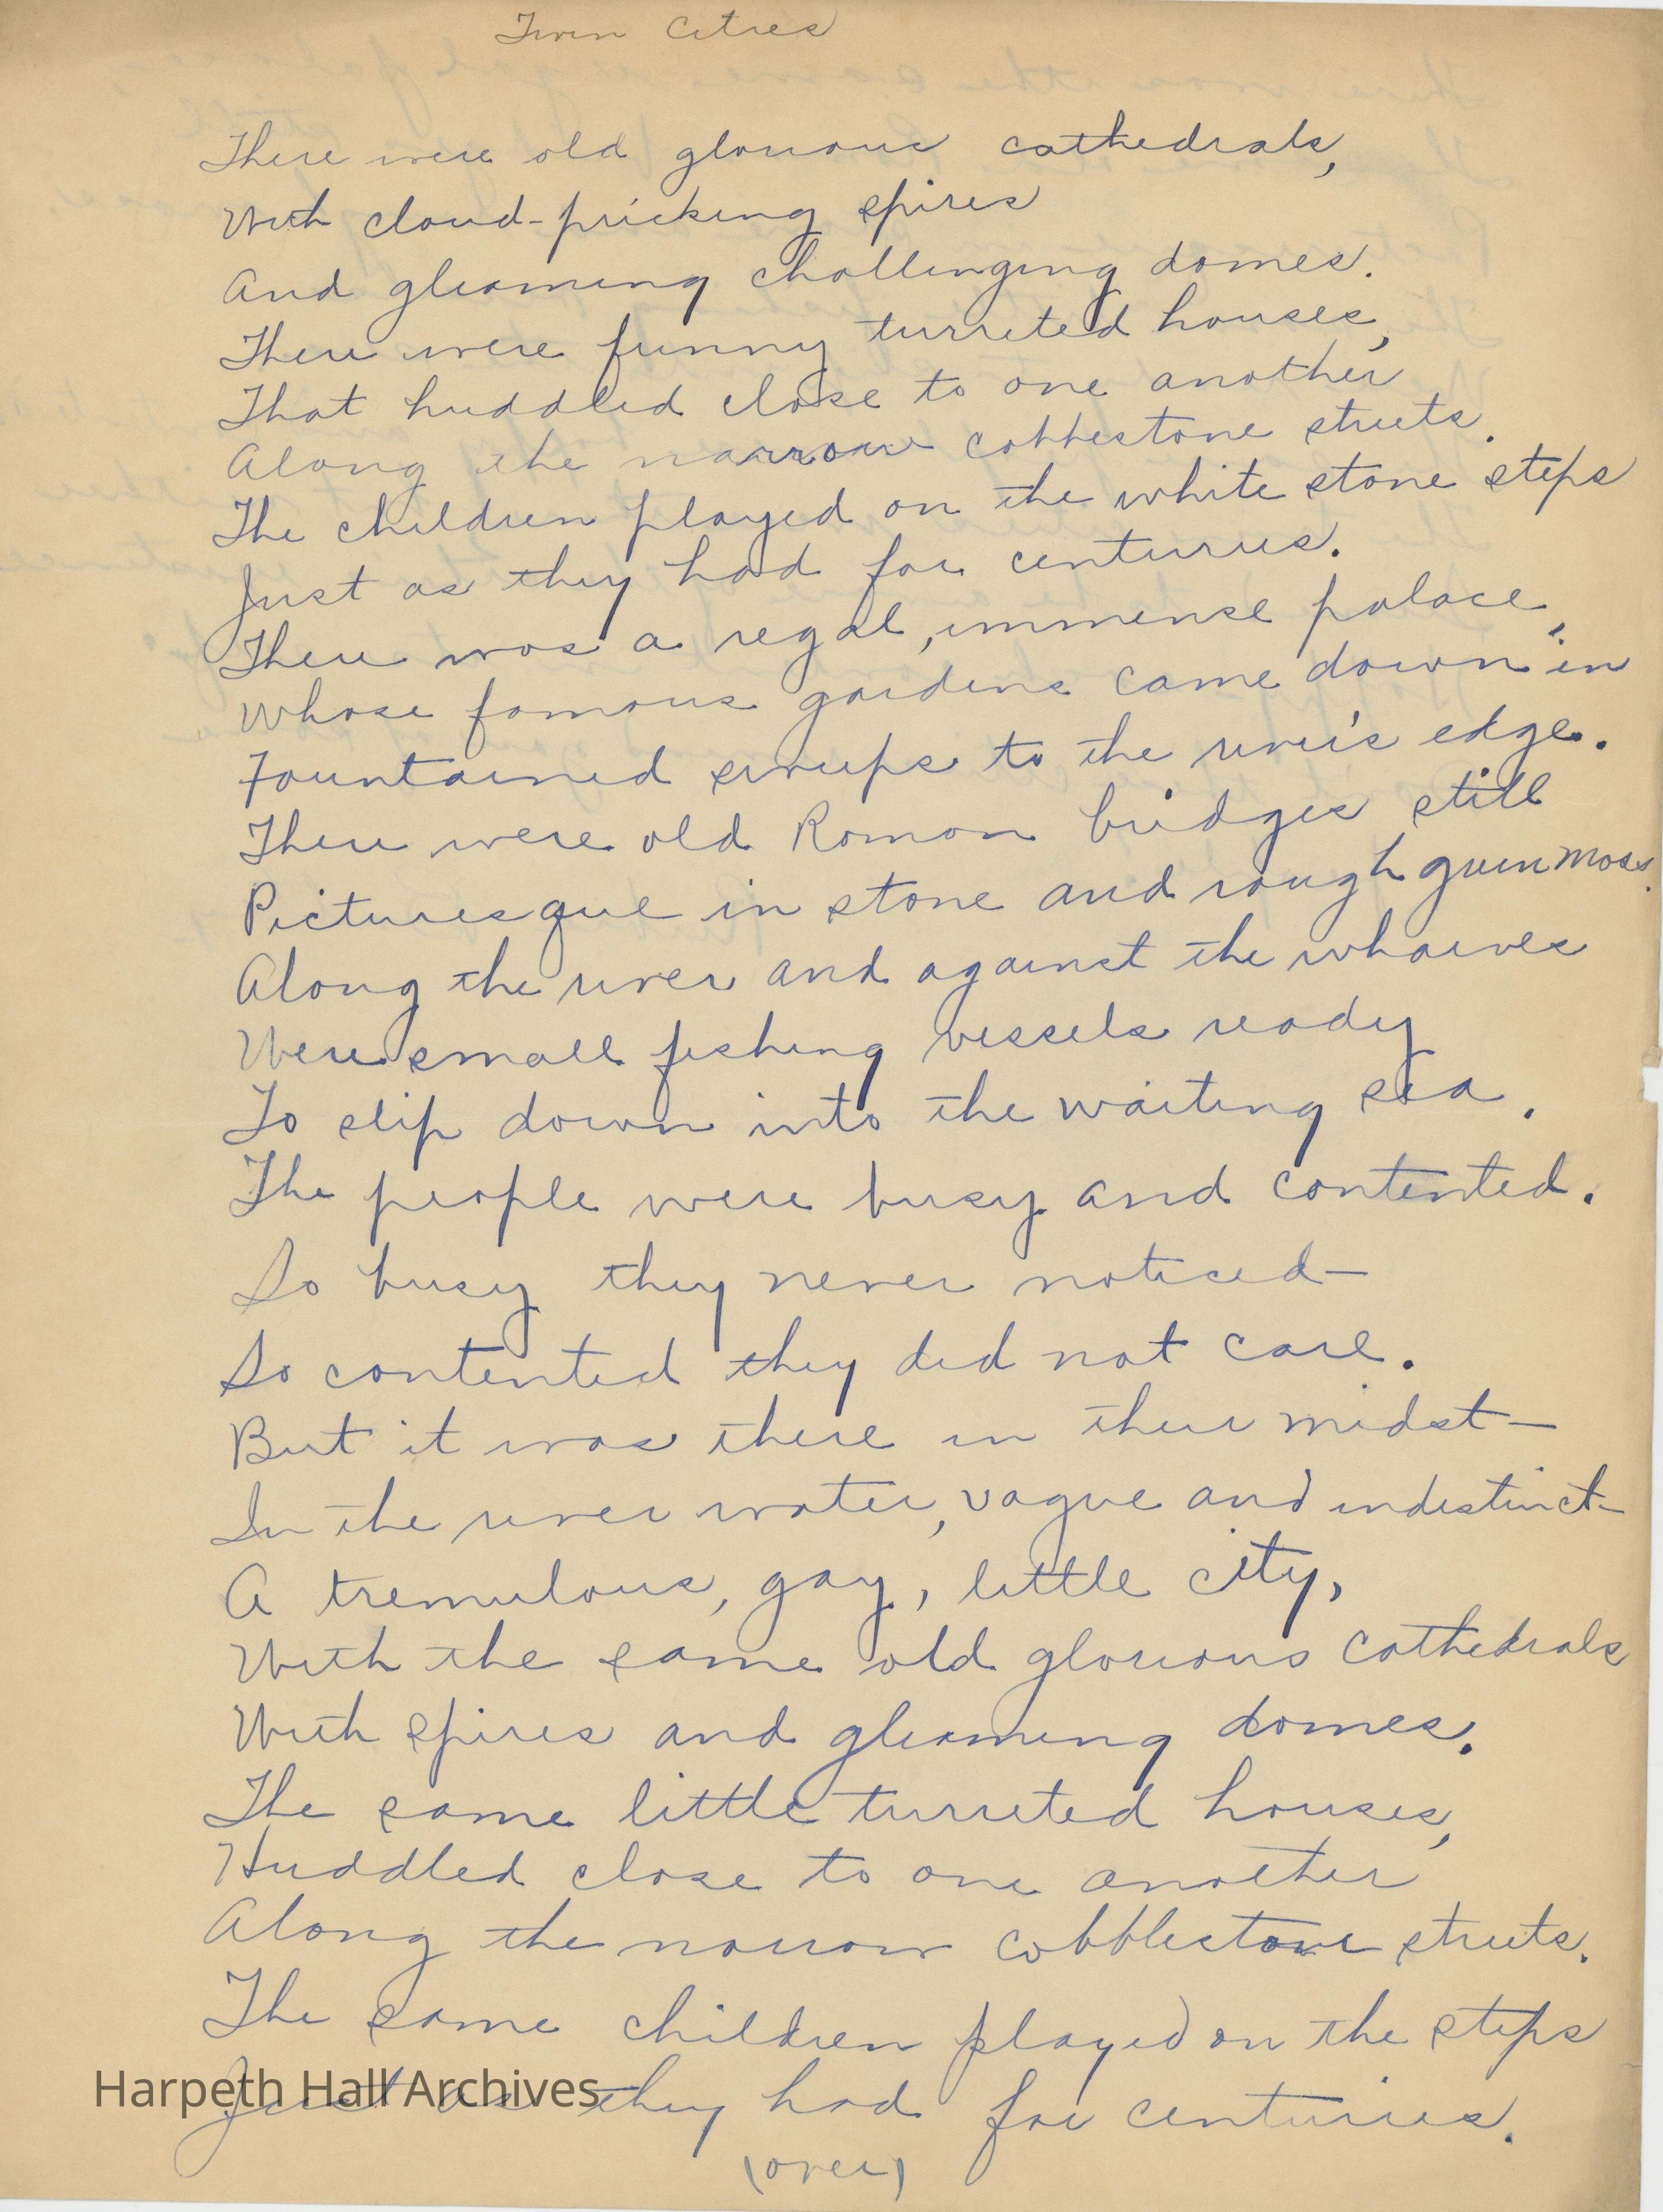 Twin Cities
There were old glorious cathedrals,
With cloud-pricking spires
And gleaming challenging domes.
There were funny turreted houses,
That huddled close to one another
Along the narrow cobblestone streets.
The children played on the white stone steps
Just as they had for centuries.
There was a regal, immense palace,
Whose famous gardens came down in
Fountained sweeps to the river's edge.
There were old Roman bridges still
Picturesque in stone and rough green moss.
Along the river and against the wharves
Were small fishing vessels ready
To slip down into the waiting sea.
The people were busy and contented.
So busy they never noticed—
So contented they did not care.
But it was there in their midst—
In the river water, vague and indistinct—
A tremulous, gay, little city,
With the same old glorious cathedrals
With spires and gleaming domes.
The same little turreted houses,
Huddled close to one another
Along the narrow cobblestone streets.
The same children played on the steps
Just as they had for centuries.
Harpeth Hall Archives
(over)